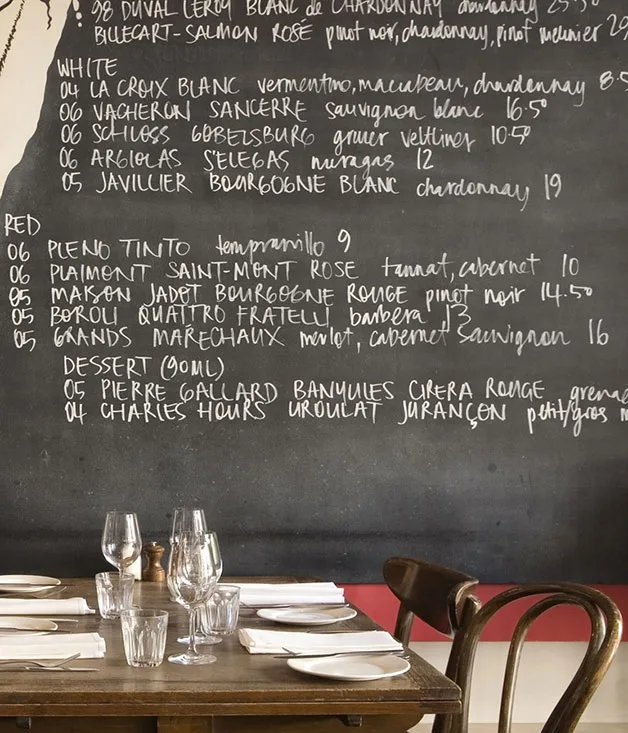 98 DUVAL LEROY BLANC de CHARDONNAY chardonnay
BILLECART-SALMON ROSÉ pinot noir, chardonnay, pinot meunier 29
WHITE
04 LA CROIX BLANC vermentino, maccabeau, chardonnay 8.5
06 VACHERON SANCERRE sauvignon blanc 16.50
06 SCHLOSS GOBELSBURG gruner veltliner 10.50
06 ARGIOLAS S'ELEGAS nuragas 12
05 JAVILLIER BOURGOGNE BLANC chardonnay 19
RED
06 PLENO TINTO tempranillo 9
06 PLAIMONT SAINT-MONT ROSE tannat, cabernet 10
05 MAISON JADOT BOURGOGNE ROUGE pinot noir 14.50
05 BOROLI QUATTRO FRATELLI barbera 13
05 GRANDS MARECHAUX merlot, cabernet sauvignon 16
DESSERT (90ML)
05 PIERRE GALLARD BANYULES CIRERA ROUGE grena
04 CHARLES HOURS UROULAT JURANÇON petit/gros m